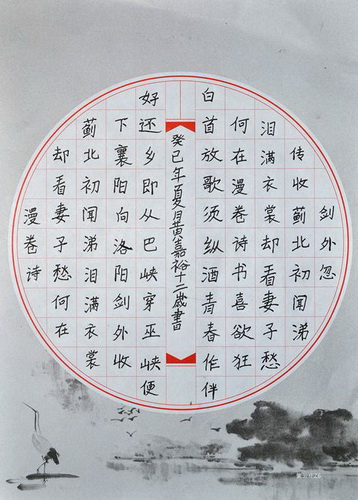 剑外忽
传收蓟北初闻涕
泪满衣裳却看妻子愁
何在漫卷诗书喜欲狂
白首放歌须纵酒青春作伴
癸巳年夏月黄嘉裕十二歳書
好还乡即从巴峡穿巫峡便
下襄阳向洛阳剑外收
蓟北初闻涕泪满衣裳
却看妻子愁何在
漫卷诗